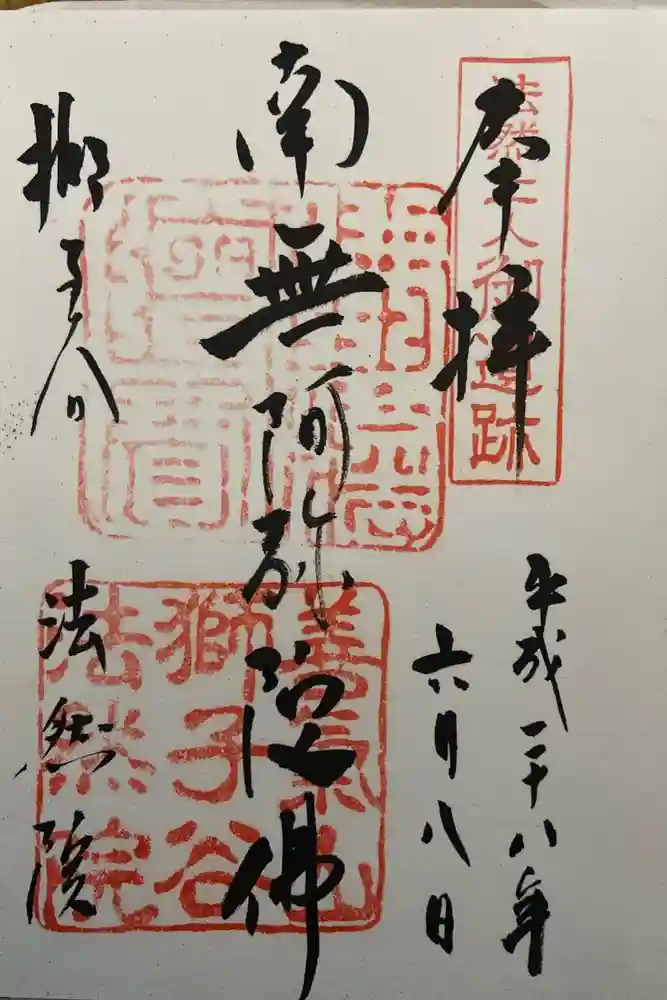 奉拝
法然上人御遺跡
平成二十八年
六月八日
南無阿弥陀佛
善氣山
獅子谷
法然院
獅子谷
法然院